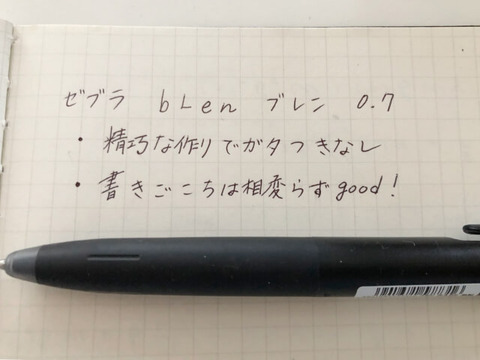 ゼブラ bLen ブレン 0.7
・精巧な作りでガタつきなし
・書きごこちは相変らずgood!